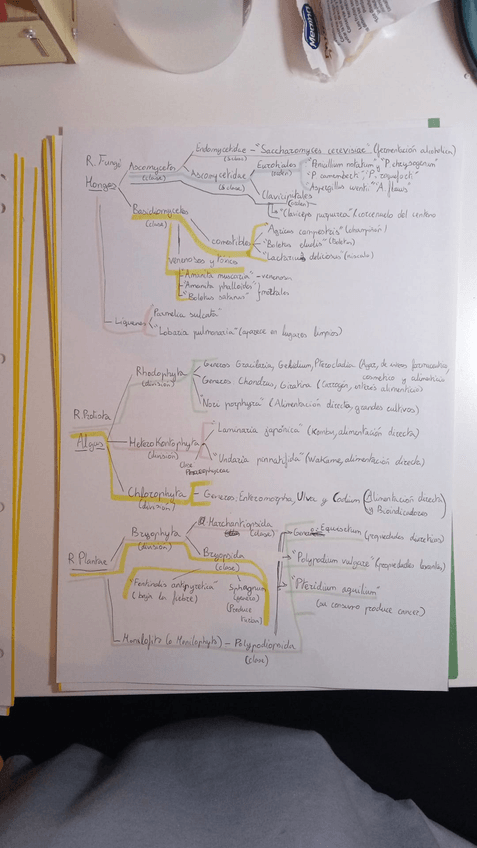 Endomycetidae - "Saccharomyces cerevisiae" (fermentación alcoholica)
R. Fungi
Hongos
Ascomycetes
(clase)
Ascomycetidae
(s.clase)
Eurotiales
(orden)
"Penicillium notatum" y "P. chrysogenum"
"P. camemberti", "P. roqueforti"
"Aspergillus wentii"
Clavicipitales
"Claviceps purpurea" (cornezuelo del centeno
Basidiomycetes
(clase)
comestibles
"Agaricus campestris" (champiñón)
"Boletus edulis" (Boletus)
"Lactarius deliciosus" (níscalo)
Venenosos y tóxicos
"Amanita muscaria" - venenosa
"Amanita phalloides"
"Boletus satanas"
mortales
Liquenes
"Parmelia sulcata"
"Lobaria pulmonaria" (aparece en lugares limpios)
R. Protista
Algas
Rhodophyta
(división)
Géneros Gracilaria, Gelidium, Pterocladia (Agar, de interés farmaceutico,
cosmetico y alimenticio
Géneros Chondrus, Gigartina (Carragén, interés alimenticio)
"Nori porphyra" (Alimentación directa, grandes cultivos)
Heterokontophyta
(división)
Clase
Phaeophyceae
"Laminaria japónica" (Kombu, alimentación directa)
"Undaria pinnatifida" (Wakame, alimentación directa)
Chlorophyta
(división)
Géneros: Enteromorpha, Ulva y Codium (Alimentación directa
y Bioindicadores
R. Plantae
Bryophyta
(división)
Marchantiopsida
(clase)
Bryopsida
(clase)
"Fontinalis antipyretica"
(baja la fiebre)
Sphagnum
(género)
(Produce
Genero Equisetum (propiedades diuréticas)
"Polypodium vulgare" (propiedades
"Pteridium aquilinum"
(su consumo produce cancer)
(o Monilophyta) - Polypodiopsida
(clase)